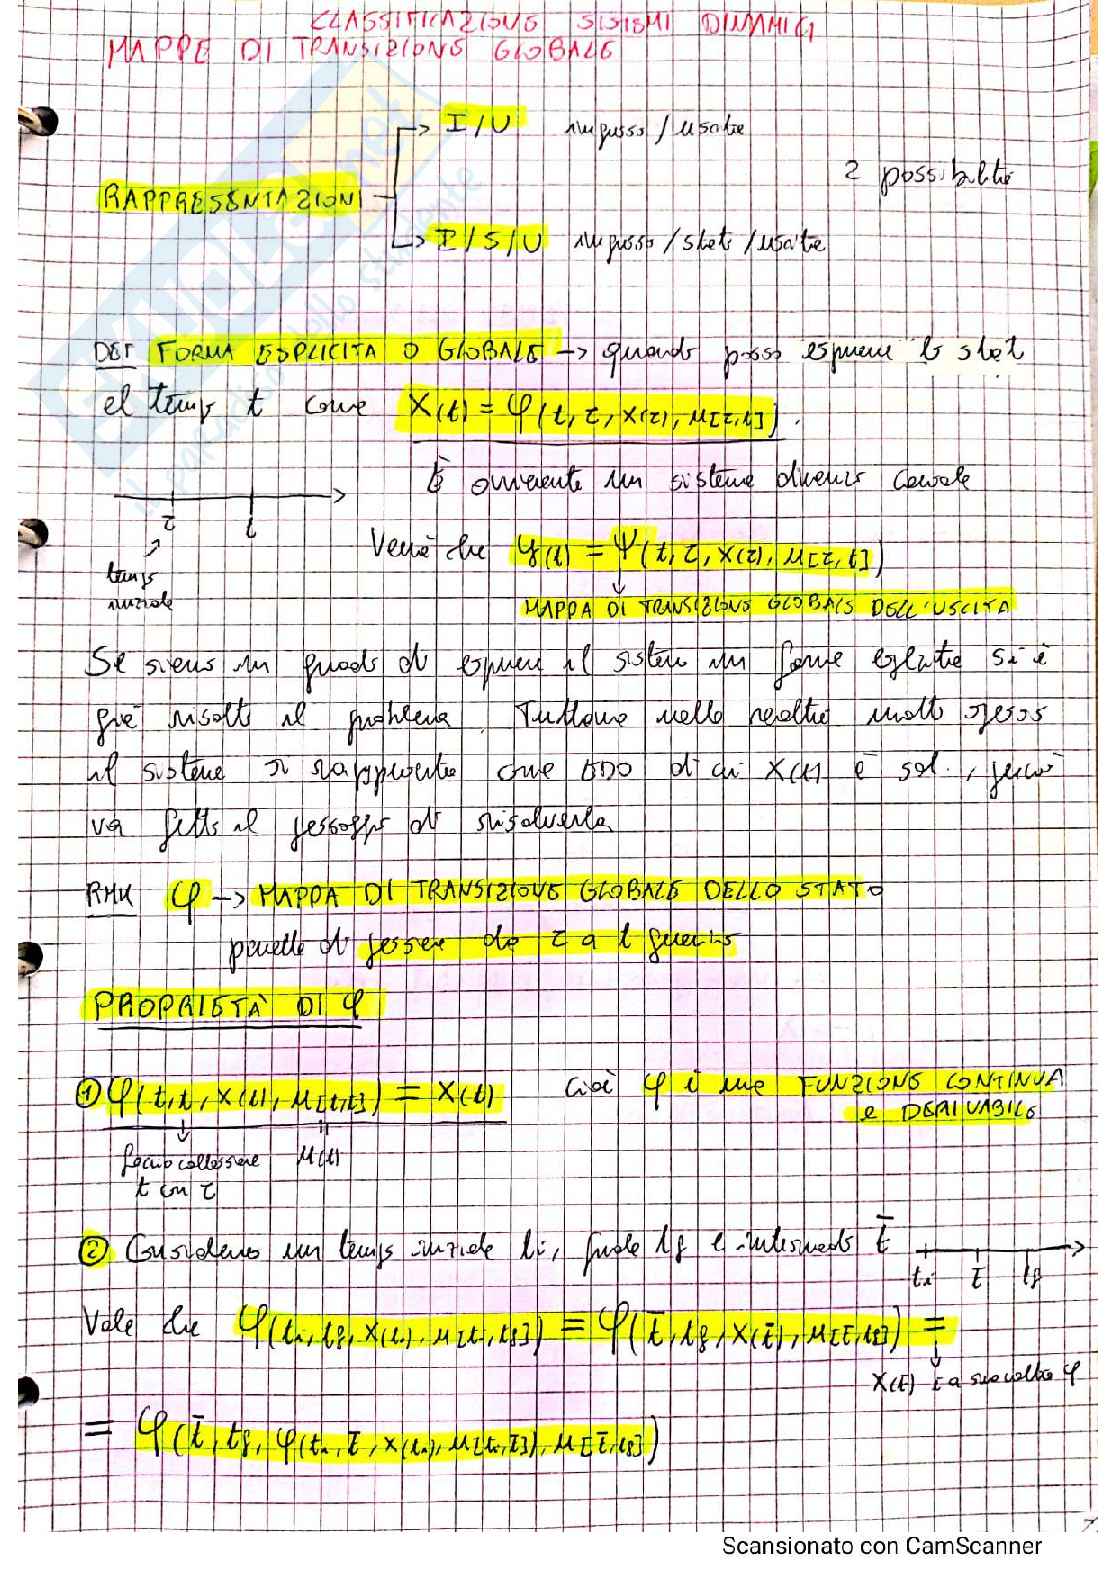 CLASSIFICAZIONE SISTEMI DINAMICI
MAPPE DI TRANSIZIONE GLOBALE
I/U ingresso/uscita
2 possibilità
RAPPRESENTAZIONI
I/S/U ingresso/stato/uscita
DEF FORMA ESPLICITA O GLOBALE → quando posso esprimere lo stato
al tempo t come X(t) = φ(t, τ, X(τ), u[τ,t]).
È ovviamente un sistema causale
τ t
tempo
iniziale
Verrà che y(t) = ψ(t, τ, X(τ), u[τ,t])
MAPPA DI TRANSIZIONE GLOBALE DELL'USCITA
Se siamo in grado di esprimere il sistema in forma esplicita si è
già risolto il problema. Tuttavia nella realtà molto spesso
il sistema si rappresenta come di cui X(t) è sol., perciò
va fatto il passaggio di risolverla
RMK φ → MAPPA DI TRANSIZIONE GLOBALE DELLO STATO
permette di passare da τ a t
PROPRIETÀ DI φ
① φ(t,t, X(t), u[t,t]) = X(t) Cioè φ è una FUNZIONE CONTINUA
e DERIVABILE
faccio collassare u(t)
t con τ
② Consideriamo un tempo iniziale ti, finale tf e intermedio t̄
ti t̄ tf
Vale che φ(ti, tf, X(ti), u[ti,tf]) = φ(t̄, tf, X(t̄), u[t̄,tf]) =
X(t̄) è a sua volta φ
= φ(t̄, tf, φ(ti, t̄, X(ti), u[ti,t̄]), u[t̄,tf])
Scansionato con CamScanner